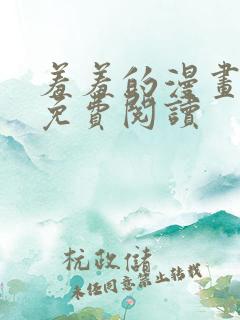 羞羞的漫畫
免費閱讀
杭政儲
未经同意禁止转载